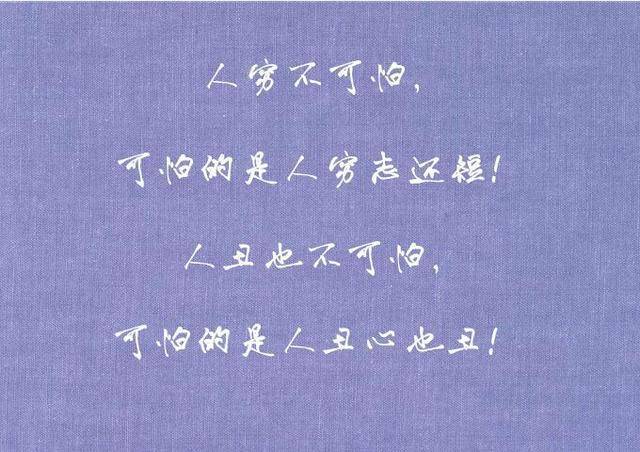 人穷不可怕，
可怕的是人穷志还短！
人丑也不可怕，
可怕的是人丑心也丑！